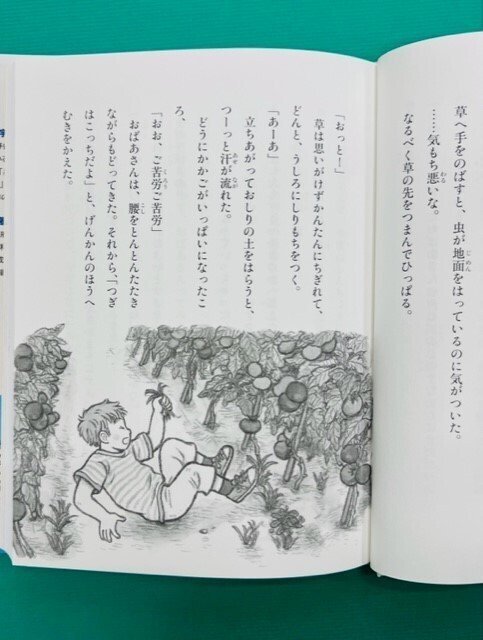 草へ手をのばすと、虫が地面をはっているのに気がついた。
……気もち悪いな。
なるべく草の先をつまんでひっぱる。
「おっと！」
草は思いがけずかんたんにちぎれて、
どんと、うしろにしりもちをつく。
「あーあ」
立ちあがっておしりの土をはらうと、
つーっと汗が流れた。
どうにかかごがいっぱいになったこ
ろ、
「おお、ご苦労ご苦労」
おばあさんは、腰をとんとんたたき
ながらもどってきた。それから、「つぎ
はこっちだよ」と、げんかんのほうへ
むきをかえた。